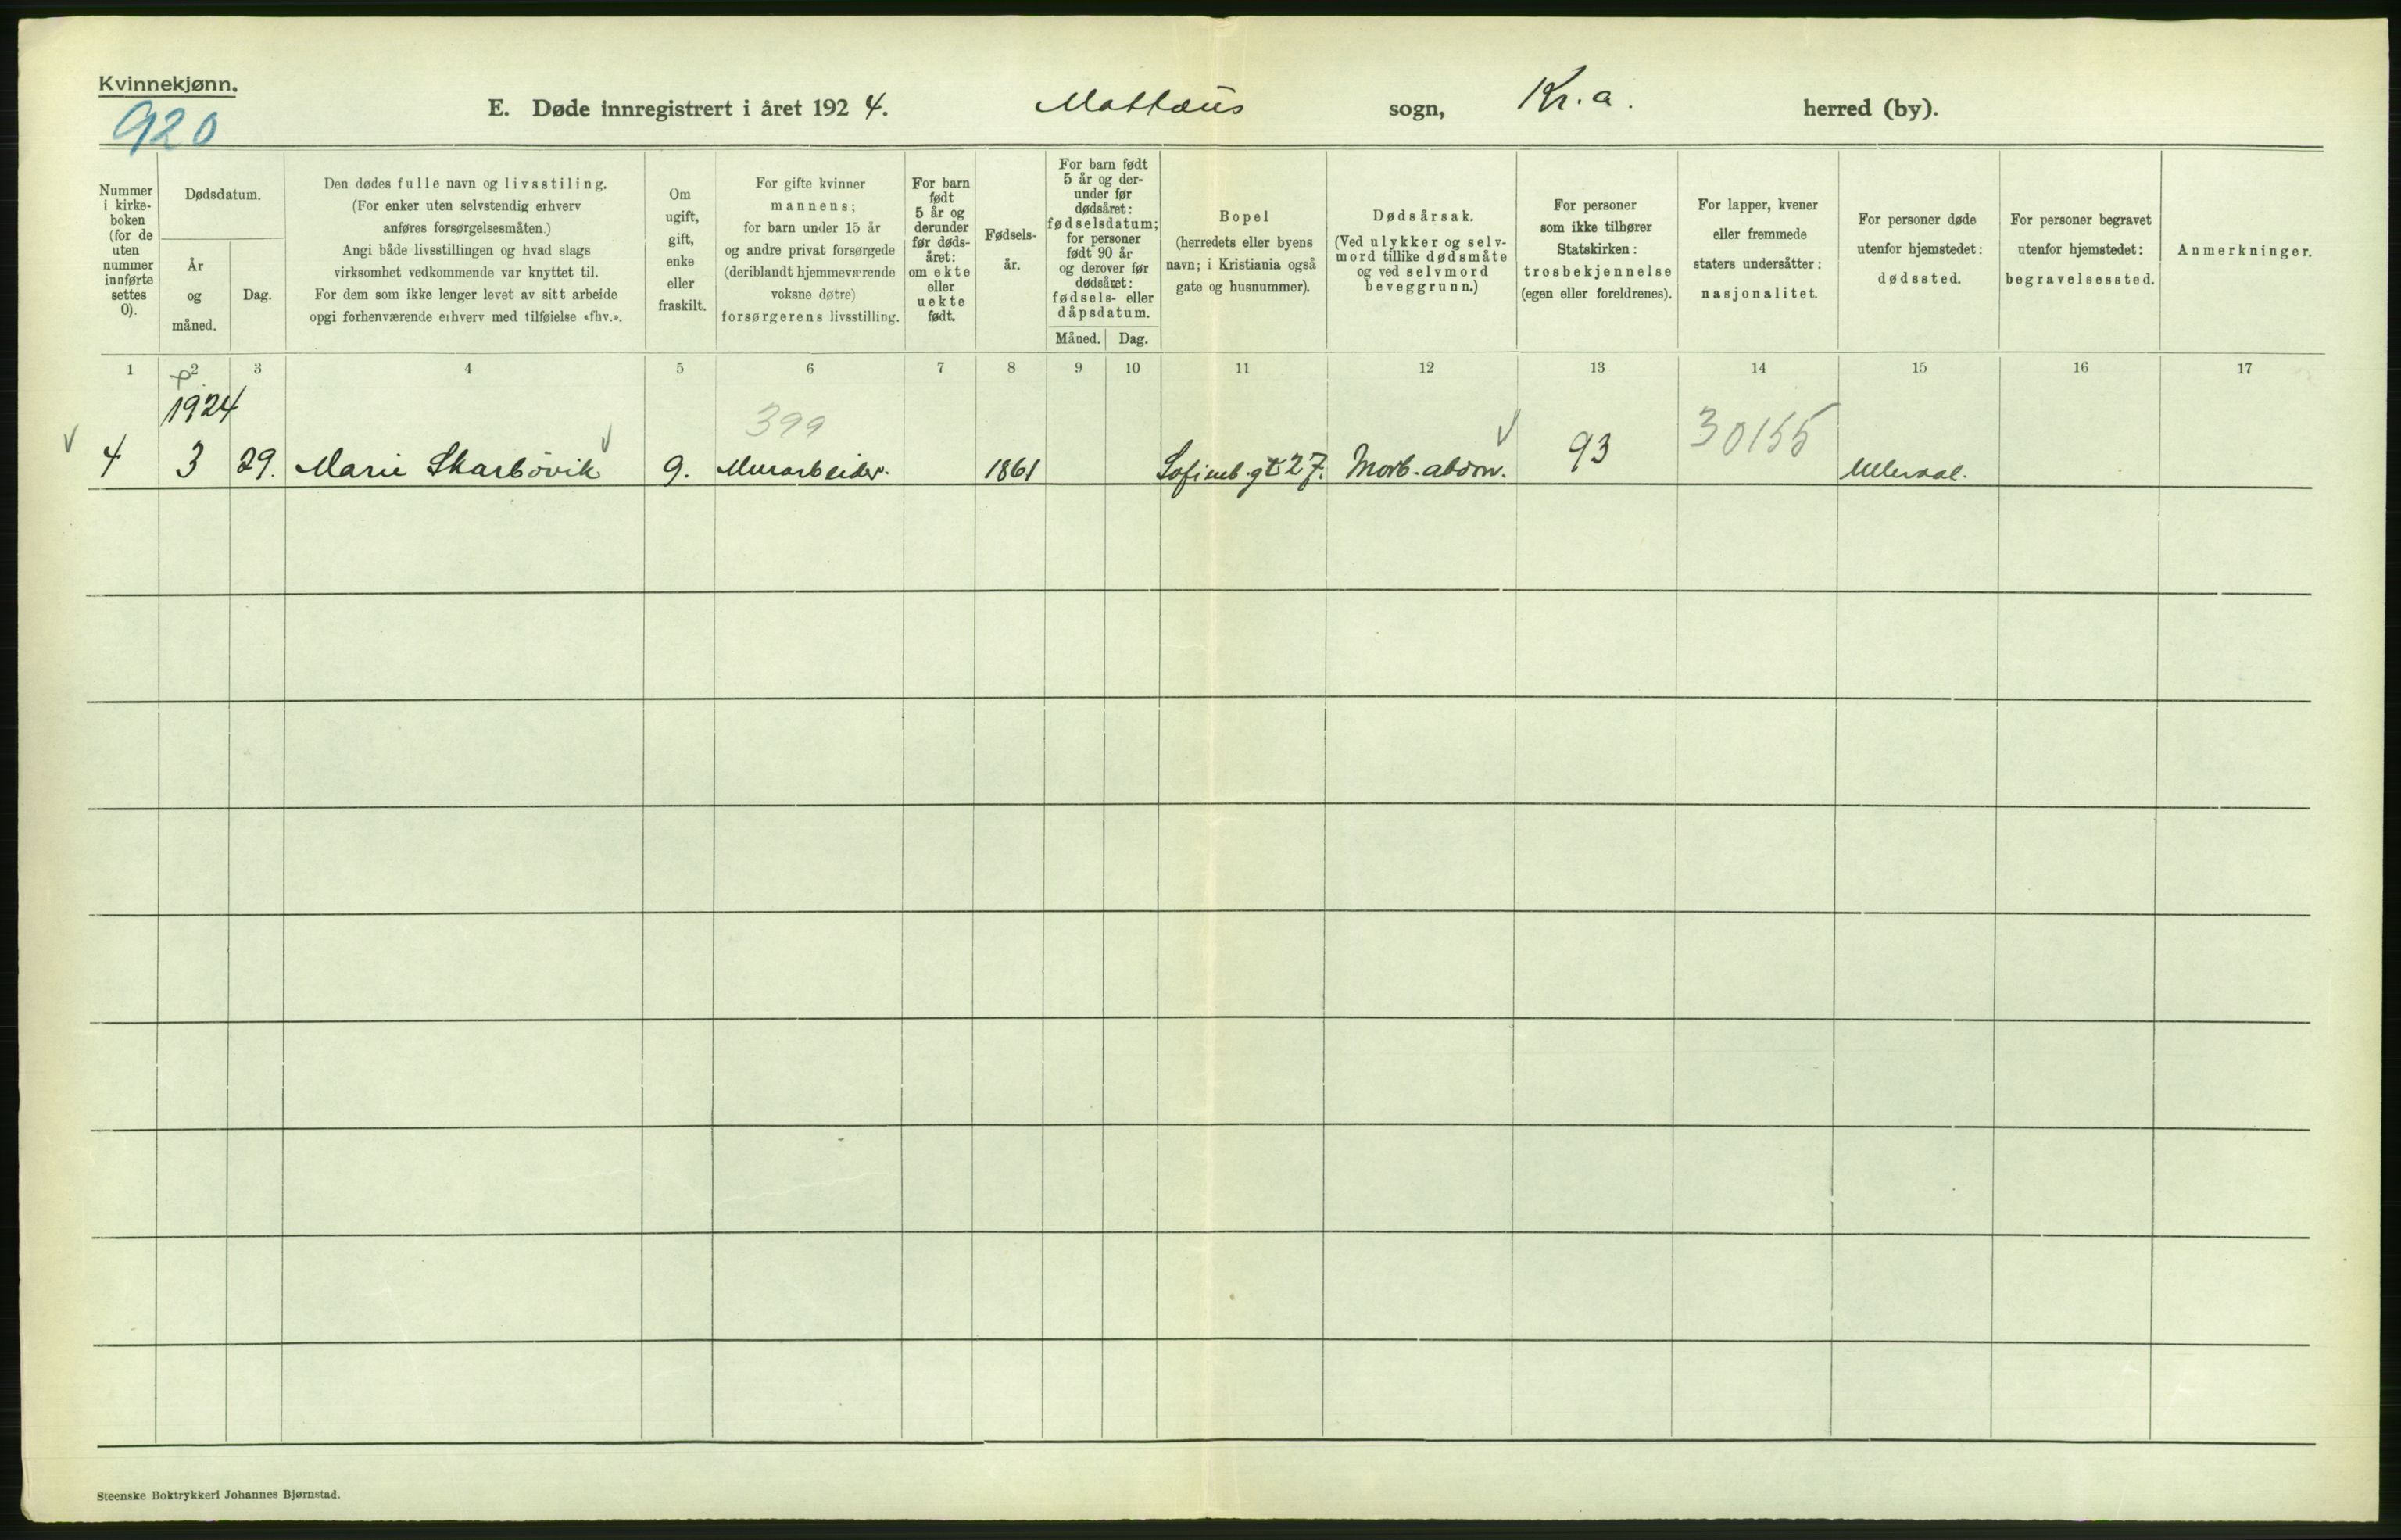 Kvinnekjønn.
920
E. Døde innregistrert i året 1924. Mattæus sogn, Kr.a. herred (by).
Nummer
i kirke-
boken
(for de
uten
nummer
innførte
settes
0).
Dødsdatum.
År
og
måned.
Dag.
Den dødes fulle navn og livsstiling.
(For enker uten selvstendig erhverv
anføres forsørgelsesmåten.)
Angi både livsstillingen og hvad slags
virksomhet vedkommende var knyttet til.
For dem som ikke lenger levet av sitt arbeide
opgi forhenværende erhverv med tilføielse «fhv.».
Om
ugift,
gift,
enke
eller
fraskilt.
For gifte kvinner
mannens;
for barn under 15 år
og andre privat forsørgede
(deriblandt hjemmeværende
voksne døtre)
forsørgerens livsstilling.
For barn
født
5 år og
derunder
før døds-
året:
om ekte
eller
uekte
født.
Fødsels-
år.
For barn født
5 år og der-
under før
dødsåret:
fødselsdatum;
for personer
født 90 år
og derover før
dødsåret:
fødsels- eller
dåpsdatum.
Måned. Dag.
Bopel
(herredets eller byens
navn; i Kristiania også
gate og husnummer).
Dødsårsak.
(Ved ulykker og selv-
mord tillike dødsmåte
og ved selvmord
beveggrunn.)
For personer
som ikke tilhører
Statskirken:
trosbekjennelse
(egen eller foreldrenes).
For lapper, kvener
eller fremmede
staters undersåtter:
nasjonalitet.
For personer døde
utenfor hjemstedet:
dødssted.
For personer begravet
utenfor hjemstedet:
begravelsessted.
Anmerkninger.
1 2 3 4 5 6 7 8 9 10 11 12 13 14 15 16 17
1924
399
30155
4 3 29. Marie Skarbövik g. Murarbeider. 1861 Sofienb.gt 27. Morb. abdom. 93 Ullevaal.
Steenske Boktrykkeri Johannes Bjørnstad.